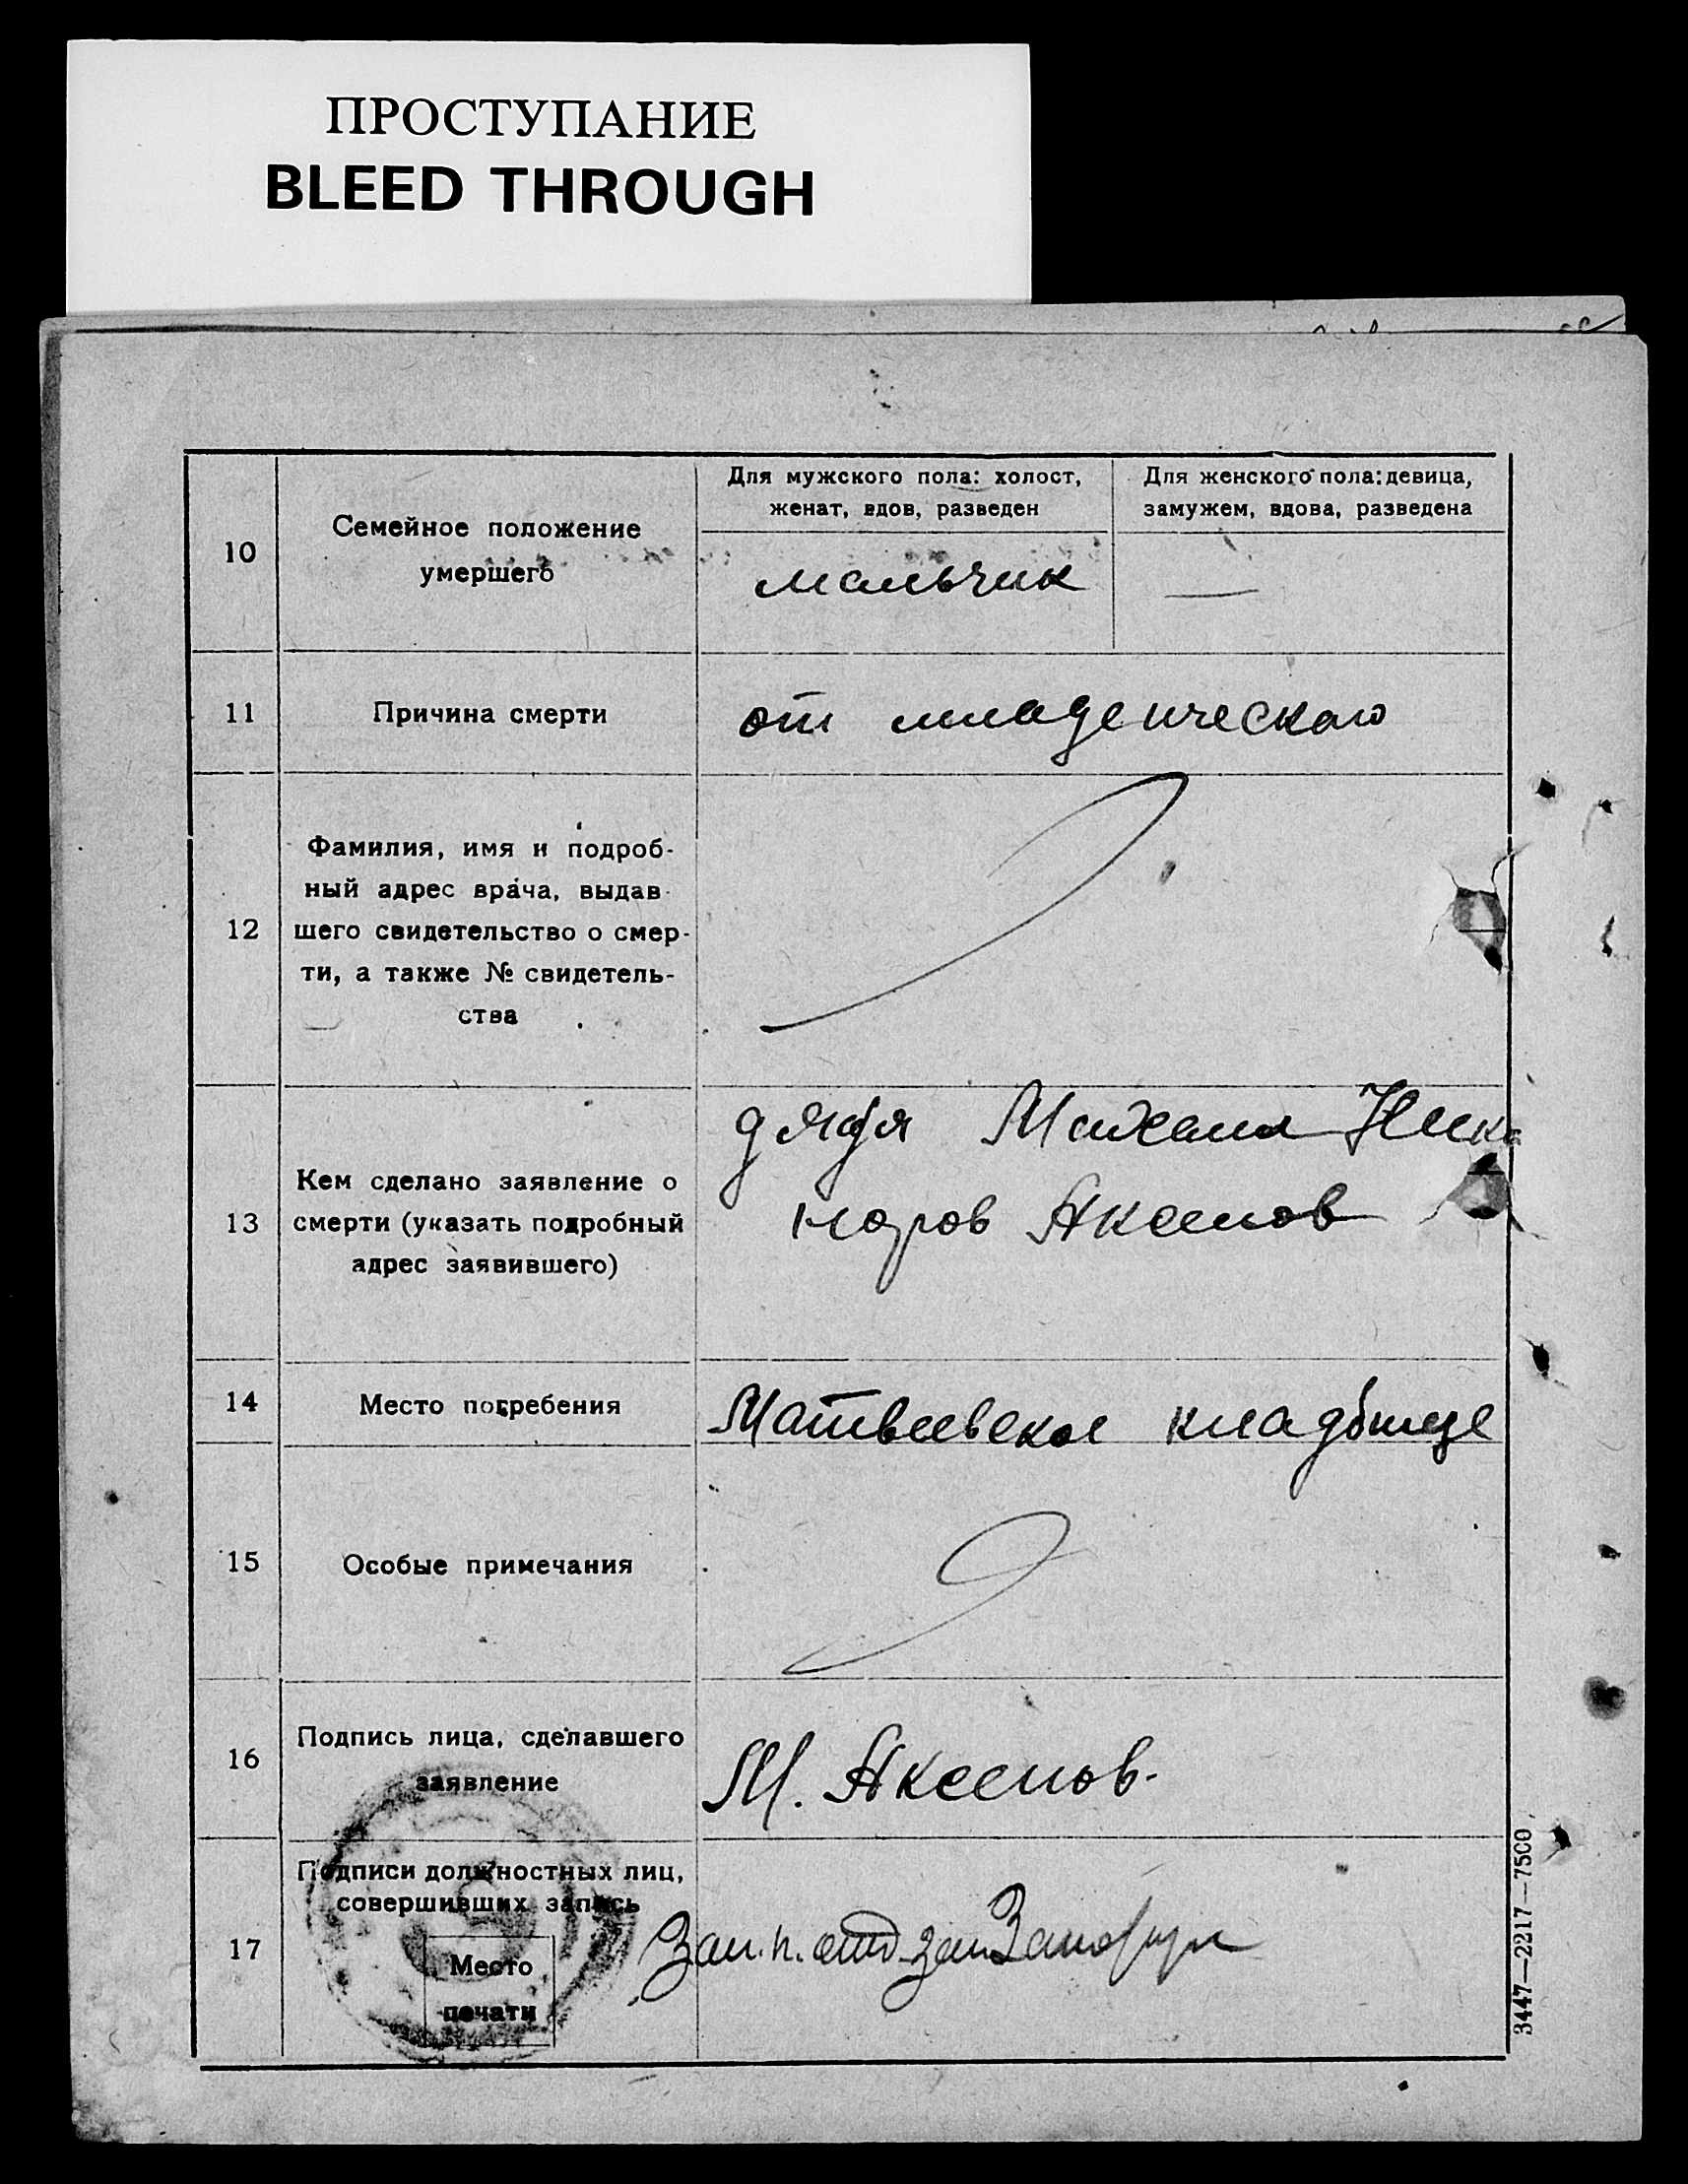 ПРОСТУПАНИЕ
BLEED THROUGH
10
Семейное положение
умершего
Для мужского пола: холост,
женат, вдов, разведен
Для женского пола: девица,
замужем, вдова, разведена
мальчик
—
11
Причина смерти
от младеического
12
Фамилия, имя и подроб-
ный адрес врача, выдав-
шего свидетельство о смер-
ти, а также № свидетель-
ства
13
Кем сделано заявление о
смерти (указать подробный
адрес заявившего)
дядя Михаил Ника
норов Аксенов
14
Место погребения
Матвеевское кладбище
15
Особые примечания
16
Подпись лица, сделавшего
заявление
М. Аксенов.
17
Подписи должностных лиц,
совершивших запись
Место
печати
3447—2217—7500